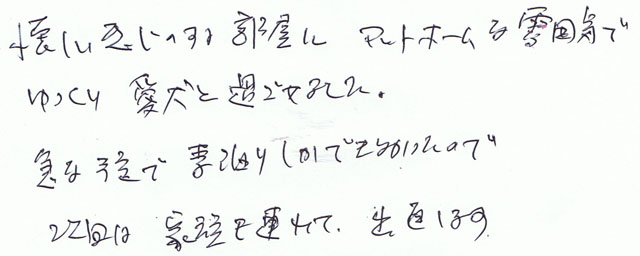 懐しい感じのする部屋に アットホームな雰囲気で
ゆっくり 愛犬と過ごせました。
急な予定で 素泊りしかできなかったので
次回は 家族を連れて、出直します